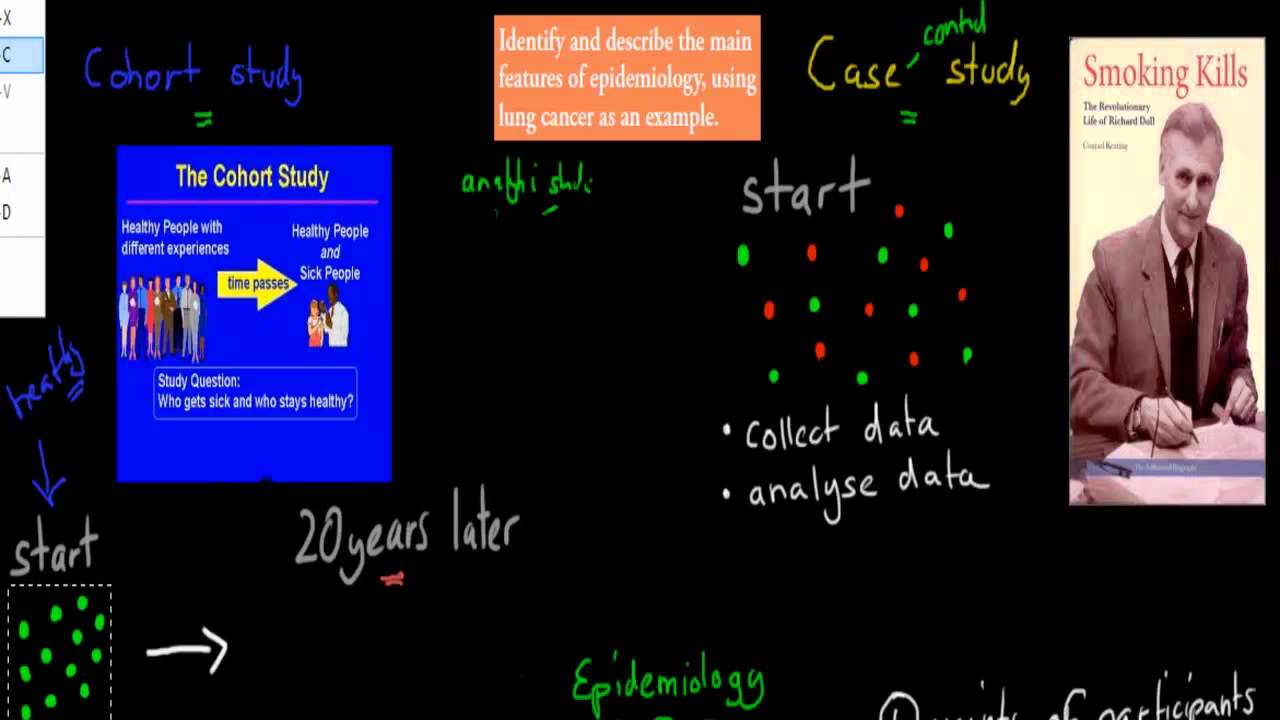 -X
-C
-V
-A
-D
Cohort study
Identify and describe the main
features of epidemiology, using
lung cancer as an example.
Case control study
Smoking Kills
The Revolutionary
Life of Richard Doll
Conrad Keating
The Cohort Study
Healthy People with
different experiences
time passes
Healthy People
and
Sick People
Study Question:
Who gets sick and who stays healthy?
start
• collect data
• analyse data
healthy
start
20 years later
Epidemiology
of participants